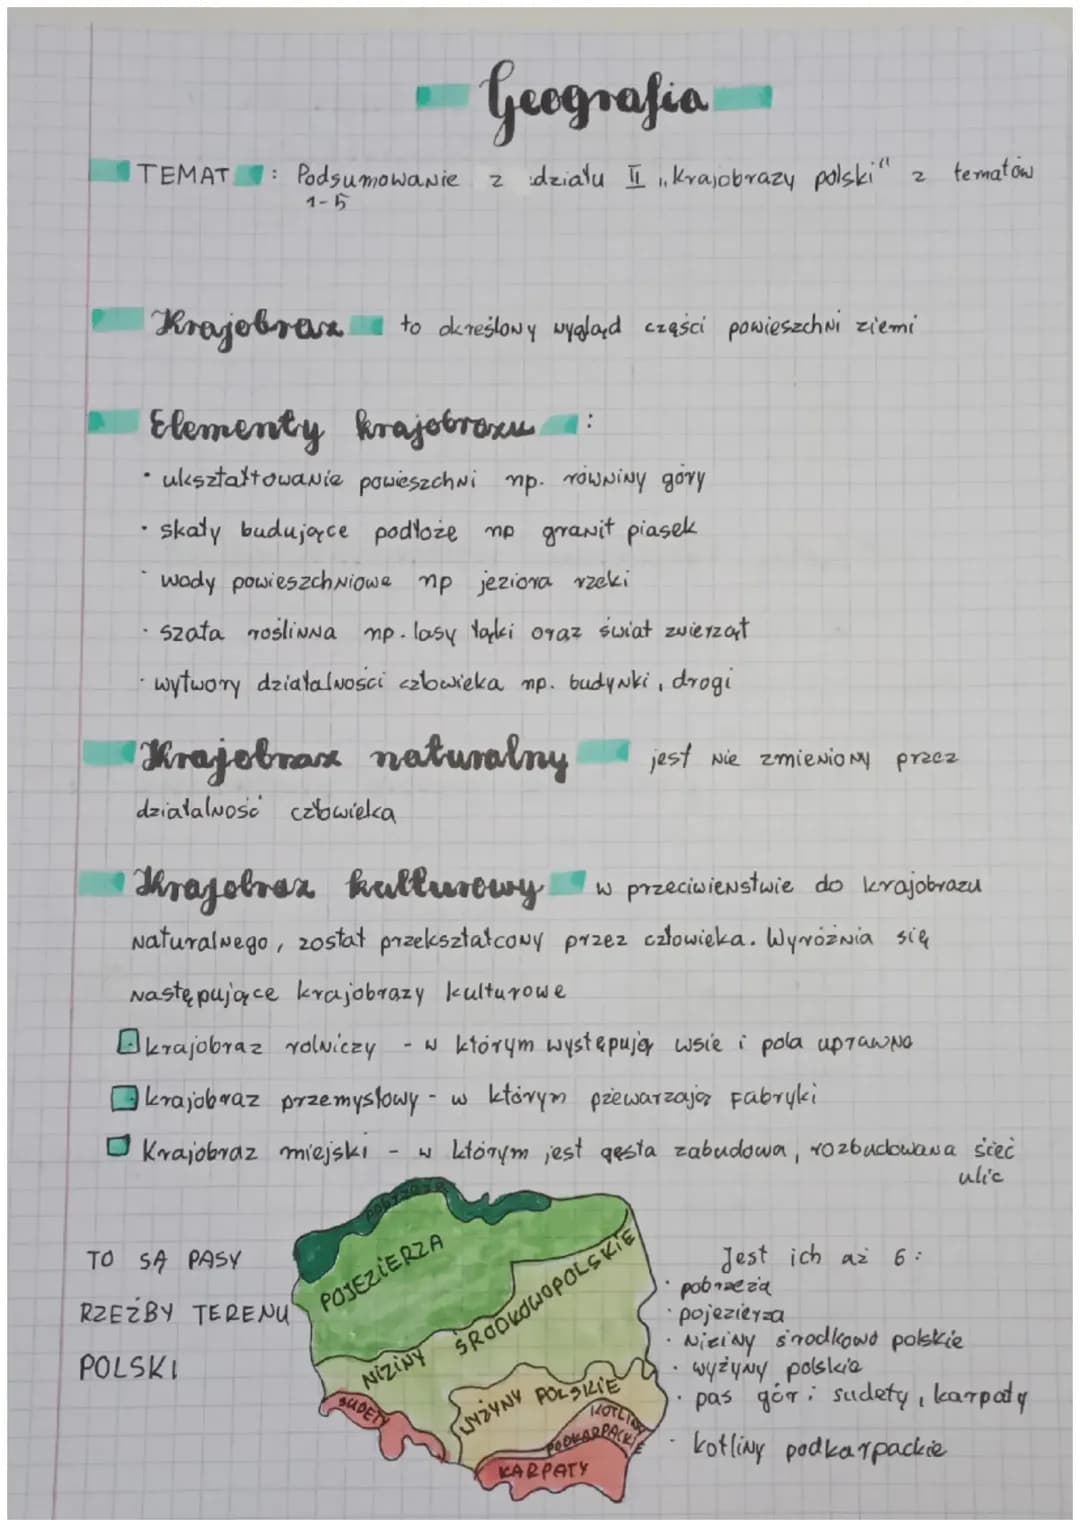 Geografia
TEMAT : Podsumowanie z działu II „Krajobrazy polski" z tematów
1-5
Krajobraz to określony wygląd części powieszchni ziemi
Elementy krajobrazu :
· ukształtowanie powieszchni np. równiny góry
· skały budujące podłożę np granit piasek
· wody powieszchniowe np jeziora rzeki
· szata roślinna np. lasy łąki oraz świat zwierząt
· wytwory działalności człowieka np. budynki, drogi
Krajobraz naturalny jest nie zmieniony przez
działalność człowieka
Krajobraz kulturowy w przeciwienstwie do krajobrazu
naturalnego, został przekształcony przez człowieka. Wyróżnia się
następujące krajobrazy kulturowe
krajobraz rolniczy - w którym występują wsie i pola uprawne
krajobraz przemysłowy - w którym pżewarzają Fabryki
Krajobraz miejski - w którym jest gęsta zabudowa, rozbudowana sieć
ulic
TO SĄ PASY
RZEŹBY TERENU
POLSKI
POBRZEŻA
POJEZIERZA
NIZINY ŚRODKOWOPOLSKIE
WYŻYNY POLSKIE
SUDETY
KOTLINY
PODKARPACKIE
KARPATY
Jest ich aż 6:
· pobrzeża
· pojezierza
· Niziny środkowo polskie
· wyżyny polskie
· pas gór: sudety, karpaty
· kotliny podkarpackie